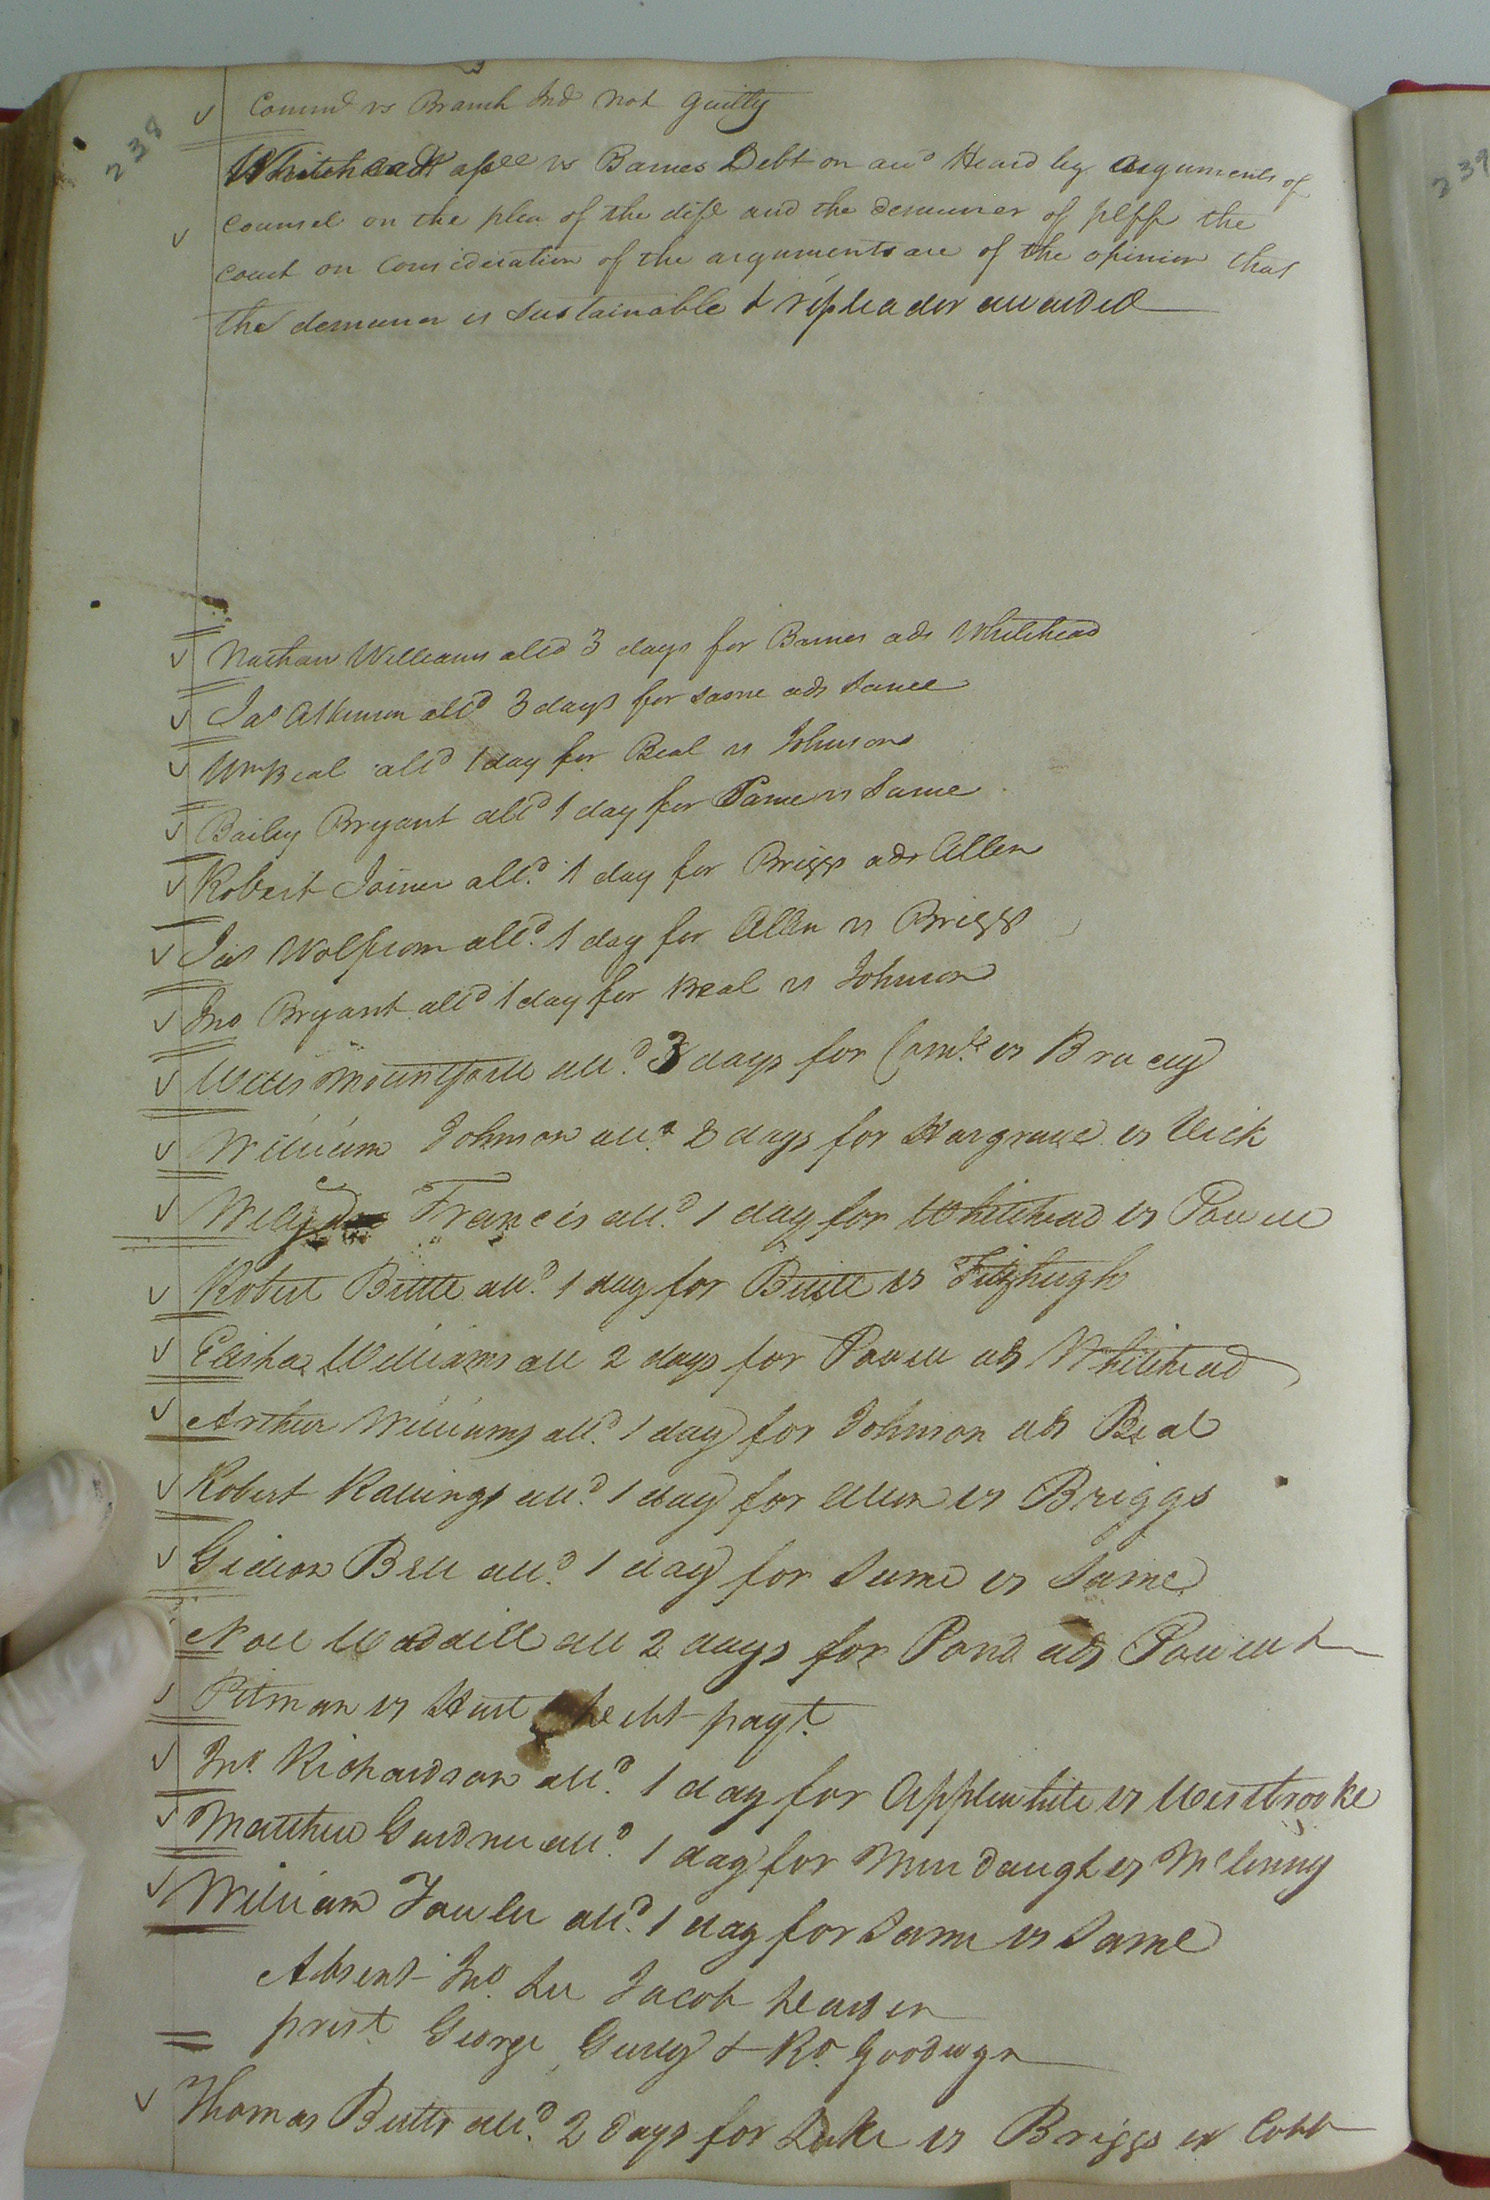 238
239
Comm'd vs Branch Ind Not guilty
Whitehead assee vs Barnes Debt on aud Heard by arguments of
counsel on the plea of the deft and the demurrer of pltff the
court on consideration of the arguments are of the opinion that
the demurrer is sustainable & repleader awarded
Nathan Williams alld 3 days for Barnes ads Whitehead
Jas Atkinson alld 3 days for same ads same
Wm Beal alld 1 day for Beal vs Johnson
Bailey Bryant alld 1 day for Same vs Same
Robert Joiner alld. 1 day for Briggs ads Allen
Jas Wolfrom alld. 1 day for Allen vs Briggs
Jno Bryant alld 1 day for Beal vs Johnson
Mountfort alld. 3 days for vs Bracey
William Johnson alld 2 days for Hargrave vs Vick
Francis alld. 1 day for Whitehead vs Powell
Robert Bittle alld. 1 day for Bittle vs Fitzhugh
Elisha Williams all 2 days for Powell ads Whitehead
Arthur Williams alld. 1 day for Johnson ads Beal
Robert Rawlings alld. 1 day for Allen vs Briggs
Gideon Bell alld. 1 day for Same vs Same
Noel Waddill all 2 days for Pond ads Powell &
Pitman vs Hart payt.
Jno. Richardson alld. 1 day for Applewhite vs Westbrooke
Matthew Gardner alld. 1 day for vs
William Fowler alld. 1 day for Same vs Same
Absent Jno. Lee Jacob
prest. George Gurley & Ro. Goodwyn
Thomas Butts alld. 2 days for Luke vs Briggs ex Cobb